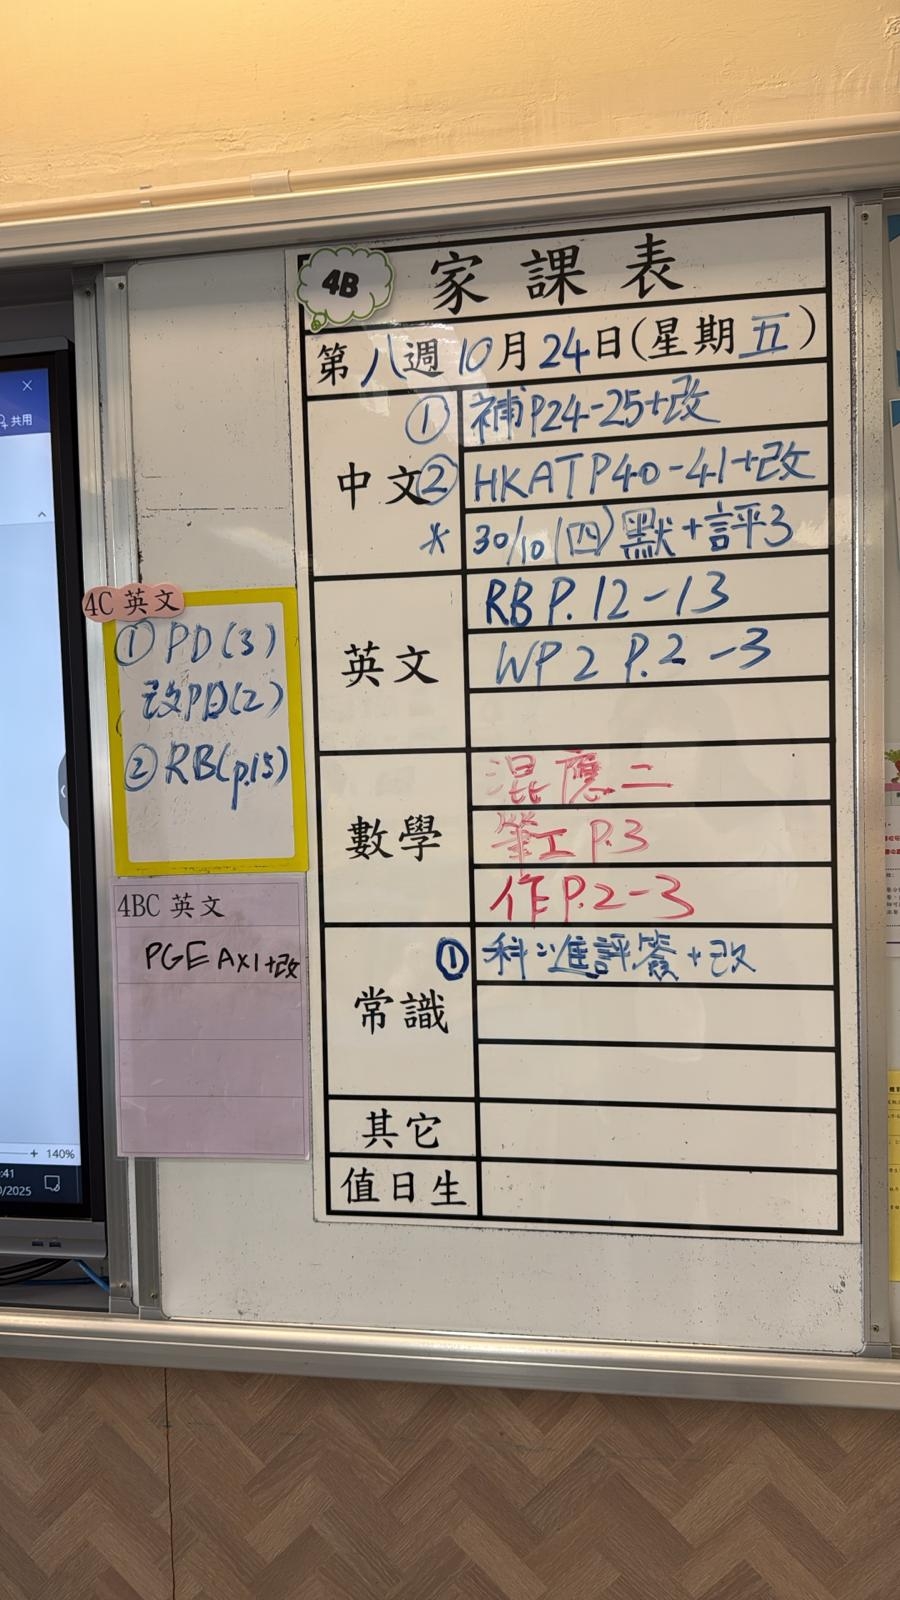 4B 家課表
第八週10月24日(星期五)
中文
① 補P24-25+改
② HKAT P40-41+改
* 30/10(四)默+評3
英文
RB P.12-13
WP2 P.2-3
數學
混應二
筆工 P.3
作P.2-3
常識
① 科:進評簽+改
其它
值日生
4C 英文
① PD(3)
改PD(2)
② RB(p.15)
4BC 英文
PGE Ax1+改
共用
140%
:41
/2025